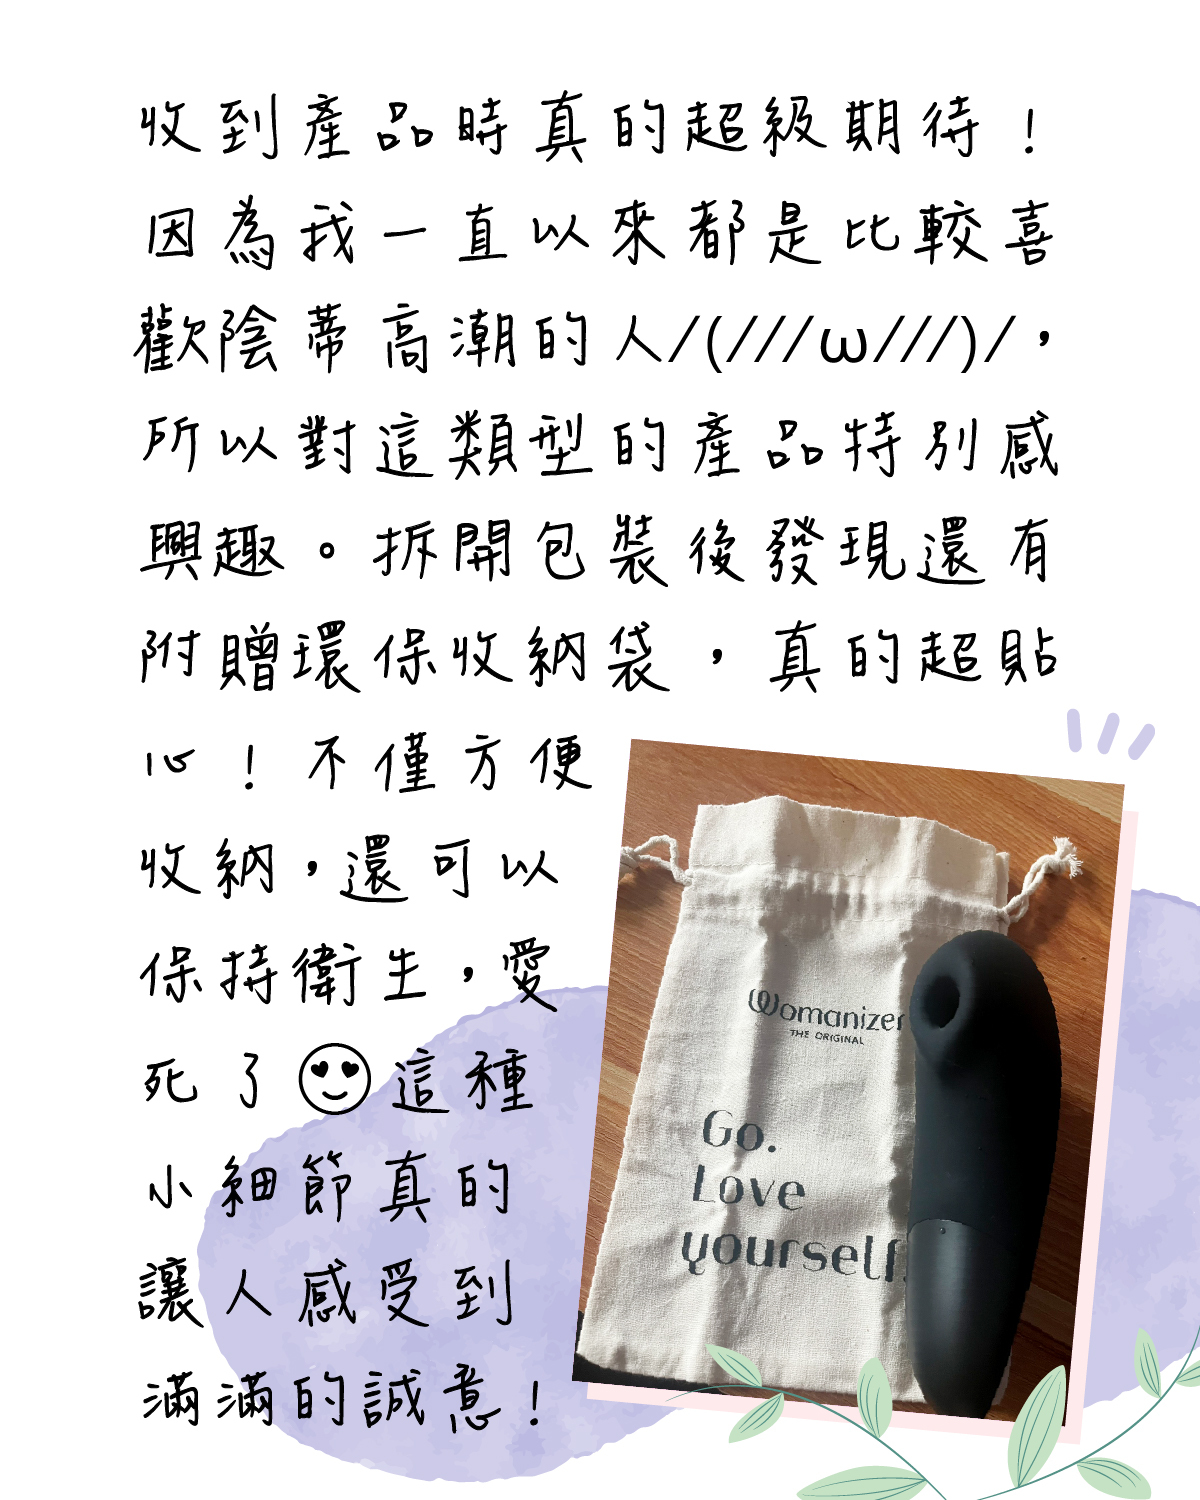 收到產品時真的超級期待！
因為我一直以來都是比較喜
歡陰蒂高潮的人/(///ω///)/，
所以對這類型的產品特別感
興趣。拆開包裝後發現還有
附贈環保收納袋，真的超貼
心！不僅方便
收納，還可以
保持衛生，愛
死了😍這種
小細節真的
讓人感受到
滿滿的誠意！
Womanizer
THE ORIGINAL
Go.
Love
yourself.